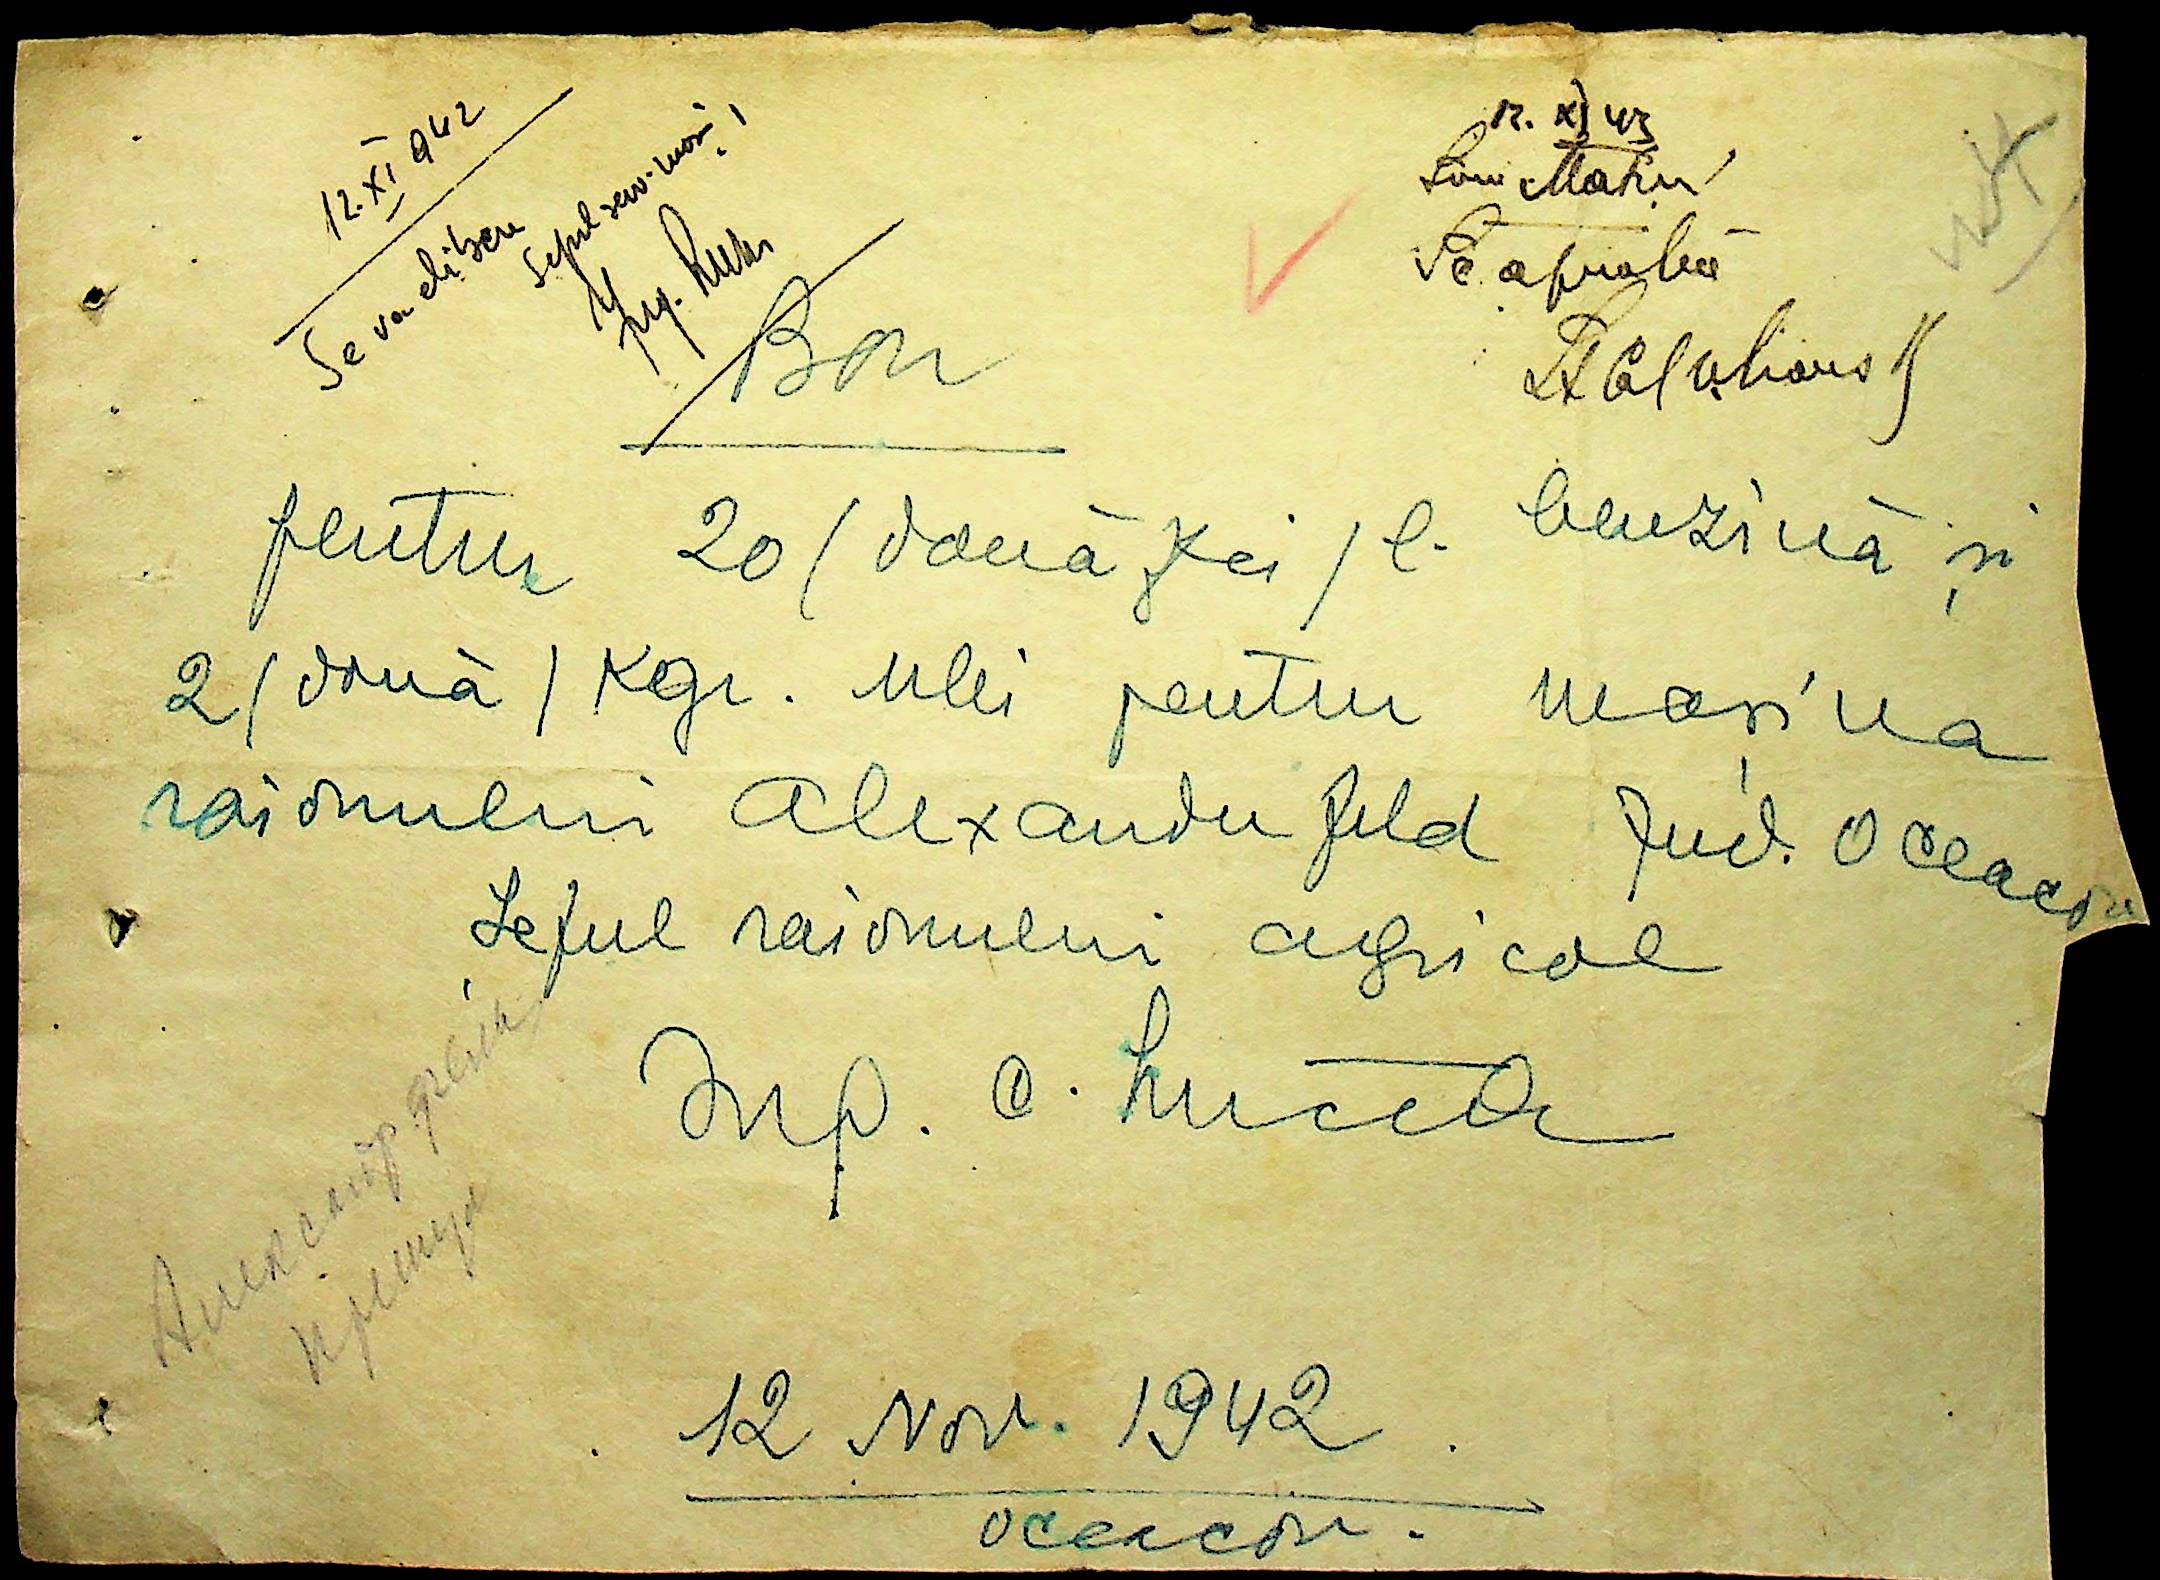 12.XI 942
Se va elibera
Șeful serv. mași!
Ing.
12. XI 42
Se aprobă
Bon
pentru 20 / douăzeci / l. benzină și
2 / două / Kgr. ulei pentru mașina
raionului Alexanderfeld Jud. Oceacov
Șeful raionului agricol
Inp. C.
Александрфельд
12 Nov. 1942
Oceacov.